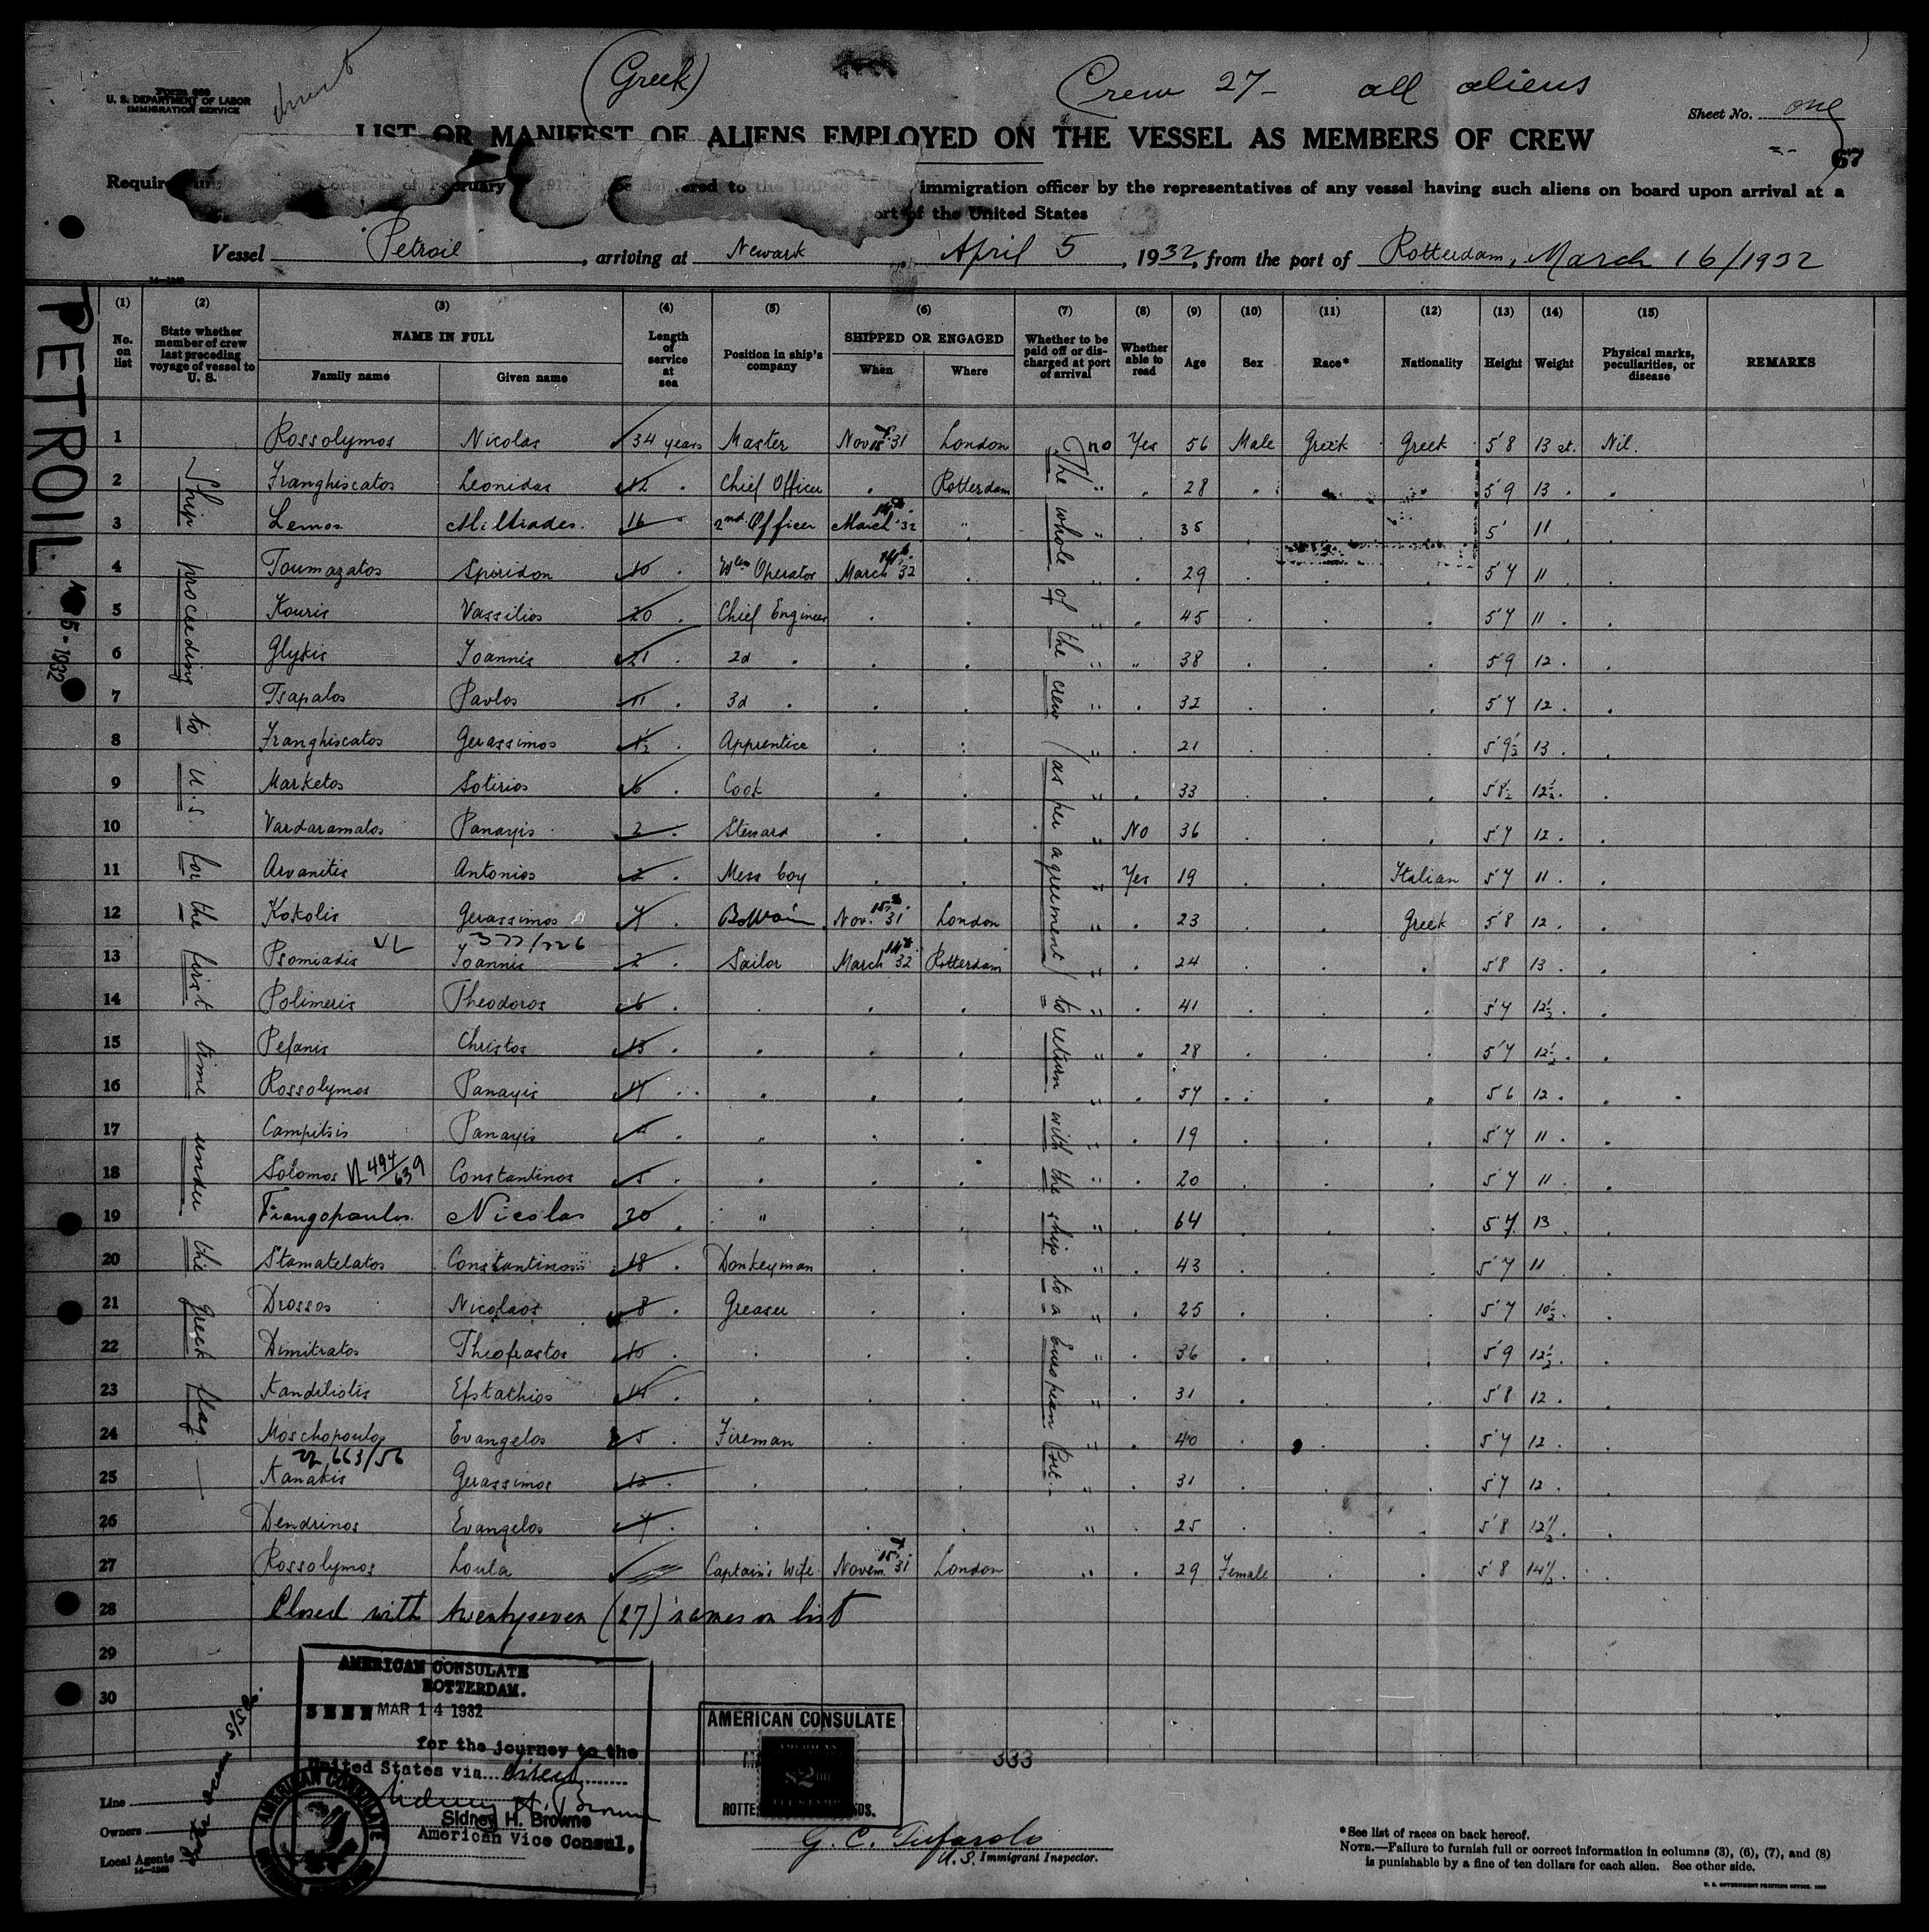 direct
(Greek)
Crew 27 - all aliens
Form 689
U. S. DEPARTMENT OF LABOR
IMMIGRATION SERVICE
Sheet No. one
LIST OR MANIFEST OF ALIENS EMPLOYED ON THE VESSEL AS MEMBERS OF CREW
67
Requir February 1917 be delivered to the United immigration officer by the representatives of any vessel having such aliens on board upon arrival at a
port of the United States
Vessel "Petroil", arriving at Newark, April 5, 1932, from the port of Rotterdam, March 16/1932
PETROIL
5-1932
(1) (2) (3) (4) (5) (6) (7) (8) (9) (10) (11) (12) (13) (14) (15)
No. on list
State whether member of crew last preceding voyage of vessel to U. S.
NAME IN FULL
Family name
Given name
Length of service at sea
Position in ship's company
SHIPPED OR ENGAGED
When
Where
Whether to be paid off or discharged at port of arrival
Whether able to read
Age
Sex
Race*
Nationality
Height
Weight
Physical marks, peculiarities, or disease
REMARKS
Ship proceeding to U.S. for the first time under the greek flag
The whole of the crew (as per agreement) to return with the ship to a european Port.
1 Rossolymos Nicolas 34 years Master Nov 15 31 London no Yes 56 Male Greek Greek 5'8 13 st. Nil.
2 Franghiscatos Leonidas 12 Chief Officer Rotterdam " 28 5'9 13
3 Lemos Miltiades 16 2nd Officer March 14th 32 " 35 5' 11
4 Toumazatos Spiridon 10 Wless Operator March 14th 32 " 29 5'7 11
5 Kouris Vassilios 20 Chief Engineer " 45 5'7 11
6 Glykis Ioannis 21 2d " " 38 5'9 12
7 Tsapalos Pavlos 11 3d " 32 5'7 12
8 Franghiscatos Gerassimos 1½ Apprentice " 21 5'9½ 13
9 Marketos Sotirios 6 Cook " 33 5'8½ 12½
10 Vardaramatos Panayis 2 Steward " No 36 5'7 12
11 Arvanitis Antonios 2 Mess boy " Yes 19 Italian 5'7 11
12 Kokolis Gerassimos 7 Nov. 15th 31 London " 23 Greek 5'8 12
377/226
13 Psomiadis Ioannis 2 Sailor March 14th 32 Rotterdam " 24 5'8 13
14 Polimeris Theodoros 6 " 41 5'7 12½
15 Pefanis Christos 13 " 28 5'7 12½
16 Rossolymos Panayis 17 " 57 5'6 12
17 Campitsis Panayis " 19 5'7 11
18 Solomos VL 494/639 Constantinos 5 " 20 5'7 11
19 Frangopoulos Nicolas 20 " " 64 5'7 13
20 Stamatelatos Constantinos 18 Donkeyman " 43 5'7 11
21 Drossos Nicolaos 8 Greaser " 25 5'7 10½
22 Dimitratos Theofrastos 10 " 36 5'9 12½
23 Kandiliotis Efstathios 14 " 31 5'8 12
24 Moschopoulos Evangelos 5 Fireman " 40 5'7 12
VL 663/56
25 Kanakis Gerassimos 12 " 31 5'7 12
26 Dendrinos Evangelos 7 " 25 5'8 12½
27 Rossolymos Loula Captain's Wife Novem. 15th 31 London " 29 Female 5'8 14½
28 Closed with twentyseven (27) names on list
29
30
AMERICAN CONSULATE
ROTTERDAM.
SEEN MAR 14 1932
for the journey to the
United States via direct
Sidney H. Browne
Sidney H. Browne
American Vice Consul.
AMERICAN CONSULATE
AMERICAN
$2.00
333
AMERICAN CONSULATE
Line
Owners
Local Agents
14-1240
G. C. Tufarolo
U.S. Immigrant Inspector.
*See list of races on back hereof.
NOTE.—Failure to furnish full or correct information in columns (3), (6), (7), and (8)
is punishable by a fine of ten dollars for each alien. See other side.
U. S. GOVERNMENT PRINTING OFFICE: 1930